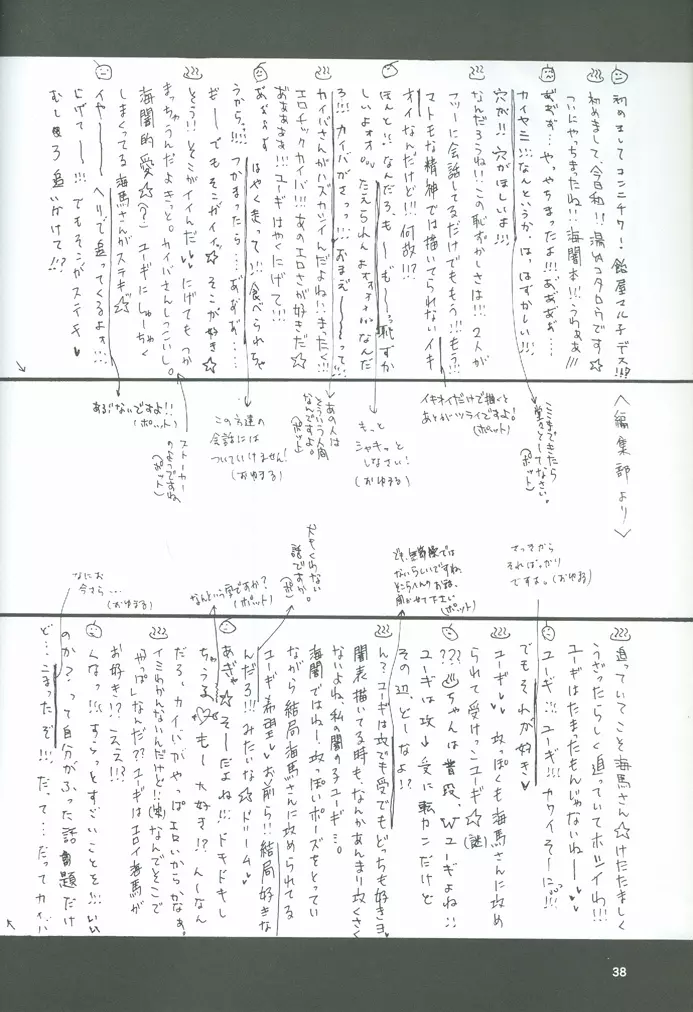 初めましてコンニチワ!飴屋マルチデス!!?
初めまして、今日和!!湯のコタロウです☆
ついにやっちまったね!!海闇本!!うわぁぁ!!!
あぁぁ…やっちまったよ!!!あぁぁぁ…
カイヤミ!!!なんというか、はっはずかしい!!!
穴が!!!穴がほしいよ!!!
なんだろうね!!この恥ずかしさは!!!2人が
フツーに会話してるだけでももう!!!もう!!!
マトモな精神では描いてられないイキ
オイなんだけど!!!何故!!?
ほんと!!なんだろ、もーもー恥ずか
しいよォォ たえられんよォォ なんだ
ろ!!!カイバがさっっ!!!おまえ〜って!!
カイバさんがハズカシイんだよね!!まったく!!!
エロチックカイバ!!!あのエロさが好きだ☆
あぁぁぁぁ!!!ユーギはやくにげて!!!
あぁぁぁ はやく走って!!!食べられちゃ
うから…!!!つかまったら…あぁぁぁ……
ぎーでもそこがイイ☆そこが好き☆
とう!!そこがイイんだ♥♥にげてもつか
まっちゃうんだよきっと。カイバさんしつこいし。
海闇的愛☆(?)ユーギにしゅーちゃく
しまくってる海馬さんがステキ☆
イヤーー ヘリで追ってくるよォ!!!
にげてー!!!でもそこがステキ♥
むしろ追いかけて!!?
〈編集部より〉
ここまできたら
堂々としてなさい。
(ポット)
イキオイだけで描くと
あとがツライですよ!
(ポット)
もっと
シャキっと
しなさい!
(おゆまる)
あの人は
そういう人間
なんですよ。
(ポット)
この方達の
会話には
ついていけません!
(おゆまる)
ストーカー
のようですね
(ポット)
あぶないですよ!!
(ポット)
さっきから
そればっかり
ですよ。(おゆまる)
(ポット)
話ですか。
なんという字ですか?
(ポット)
なにお
今さら…
(おゆまる)
追っていてこと海馬さん☆けたたましく
うざったらしく追っていてホシイわ!!!
ユーギはたまったもんじゃないねー♥
ユーギ!!!ユーギ!!!カワイそーにっ!!
でもそれが好き♥
ユーギ♥♥攻っぽくも海馬さんに攻め
られて受けっこユーギ☆(謎)
???♨ちゃんは普段、Wユーギよね!!
ユーギは攻→受に転カンだけど
その辺、どーなよ!?
ん?ユーギは攻でも受でもどっちも好きョ♥
闇表描いてる時も、なんかあんまり攻くさく
ないよね、私の闇の子ユーギ…。
海闇ではねー攻っぽいポーズをとってい
ながら結局海馬さんに攻められてる
ユーギ希望♥お前ら!!結局好きな
んだろ!!!みたいな☆ドリーム♥
あぎゃ☆そーだよね!!!ドキドキし
ちゃうる♥もー大好き!?んーなん
だろ、カイバがやっぱエロいからかなぁ。
イミわかんないんだけど!!(笑)なんでそこで
やっぱしなんだ??ユーギはエロイ海馬が
お好き!?ええ!!?
くなっ!!!すらっとすごいことを!!!いい
のか?って自分がふった話題だけ
ど…こまったぞ!!!だって…だってカイバ
38